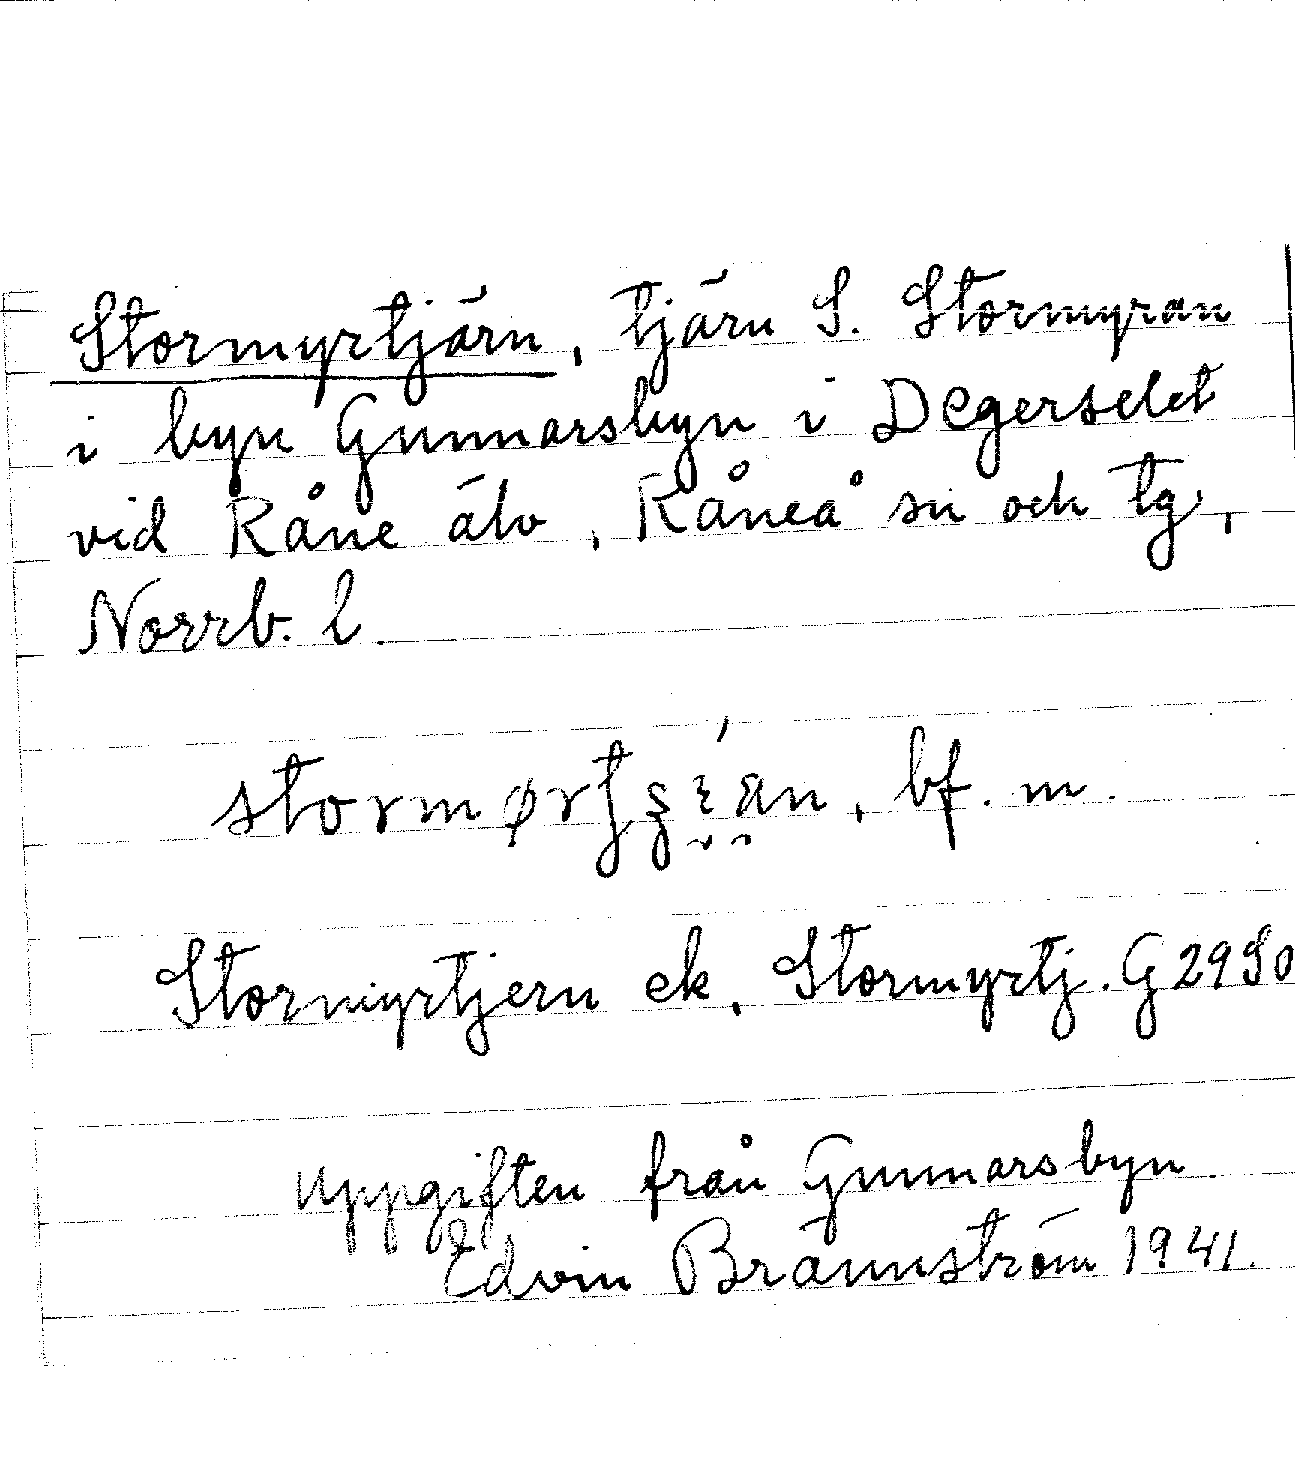 Stormyrtjärn, tjärn S. Stormyran
i byn Gunnarsbyn i Degerselet
vid Råne älv, Råneå sn och tg,
Norrb. l.
bf. m.
Stormyrtjern ek, Stormyrtj. G 2950
Uppgiften från Gunnarsbyn.
Edvin Brännström 1941.